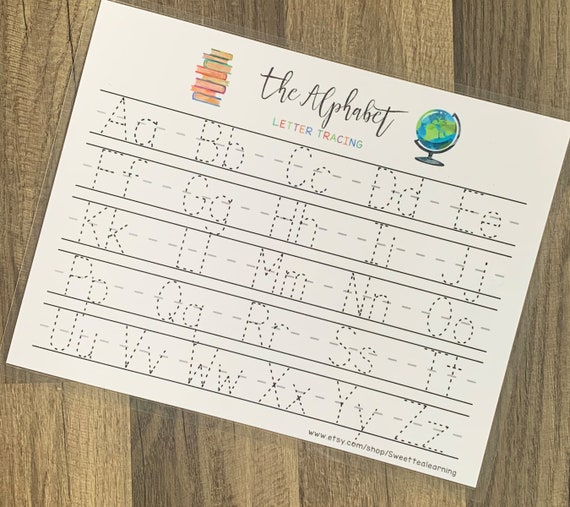 the Alphabet
LETTER TRACING
Aa Bb Cc Dd Ee
Ff Gg Hh Ii Jj
Kk Ll Mm Nn Oo
Pp Qq Rr Ss Tt
Uu Vv Ww Xx Yy Zz
www.etsy.com/shop/Sweettealearning